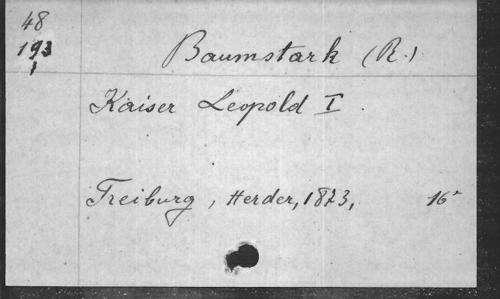 48
193
1
Baumstark (R.)
Kaiser Leopold I.
Freiburg, Herder, 1873, 16°